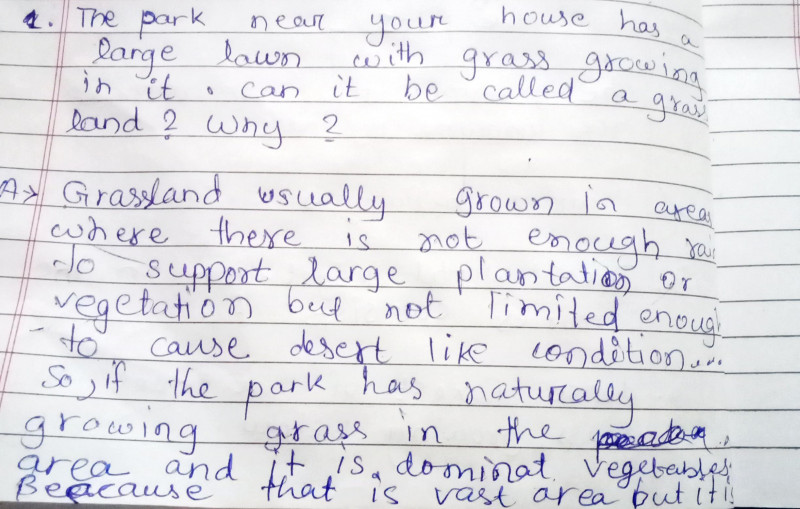 1. The park near your house has a
large lawn with grass growing
in it. can it be called a grass
land? Why?
A→ Grassland usually grown in areas
where there is not enough rai
to support large plantation or
vegetation but not limited enoug
to cause desert like condition....
So, if the park has naturally
growing grass in the
area and it is dominat vegetables
Beacause that is vast area but it i